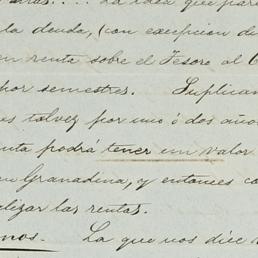 La idea que
la deuda, (con excepcion di
en renta sobre el Tesoro al
por semestres. Suplican
es talvez por uno ó dos años
nta podrá tener un valor
Granadina, y entonces co
alizar las rentas.
nos. La que nos dice